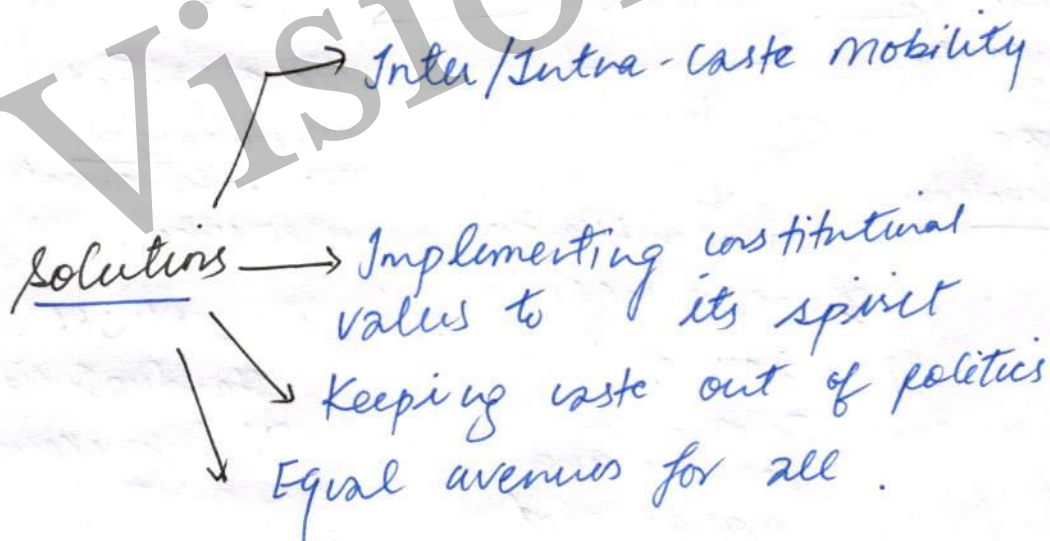 Vision
Inter/Intra-caste mobility
Solutions
Implementing constitutional
values to its spirit
Keeping caste out of politics
Equal avenues for all.